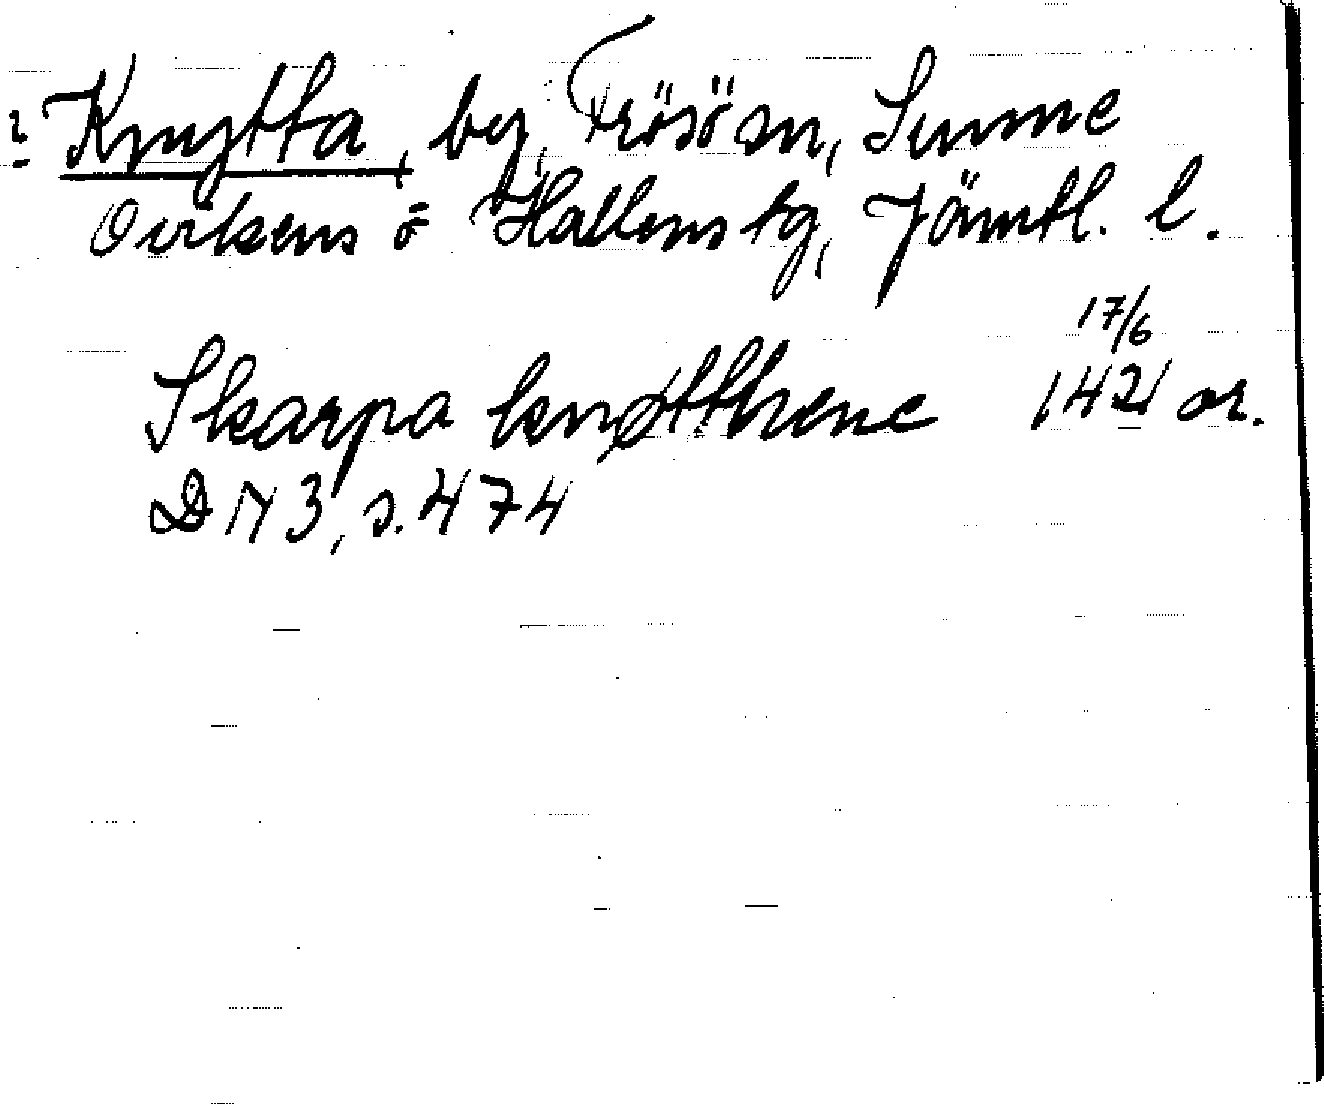 : Knytta, by, Frösö sn, Sunne
Ovikens o Hallens tg, Jämtl. l.
17/6
Skarpa knøtthene 1421 or.
DN 3, s. 474